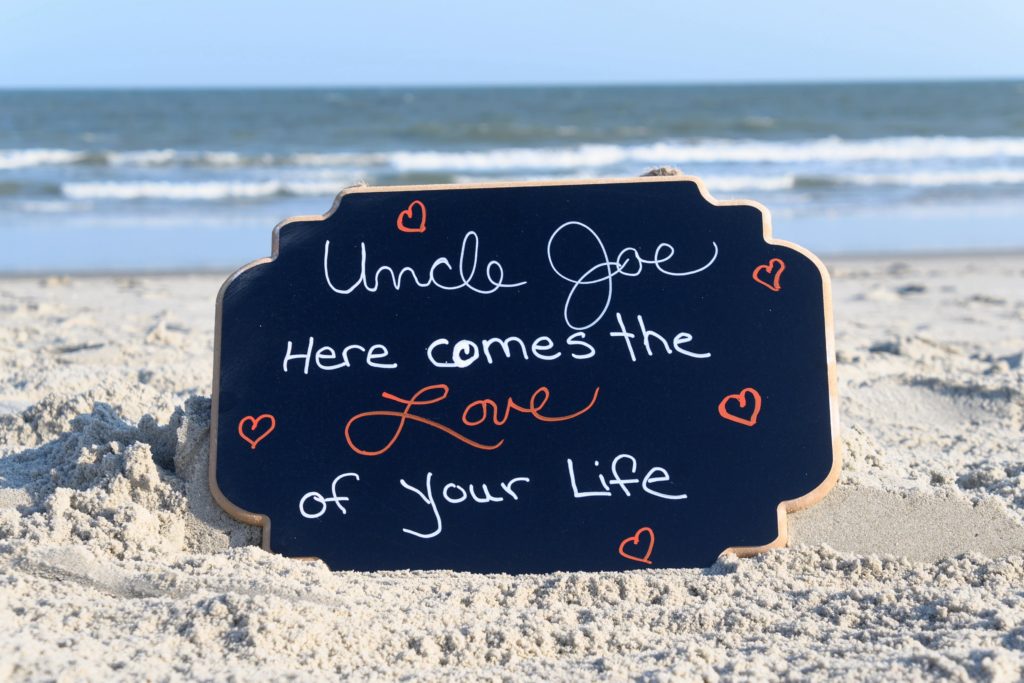 Uncle Joe
Here comes the
Love
of your Life